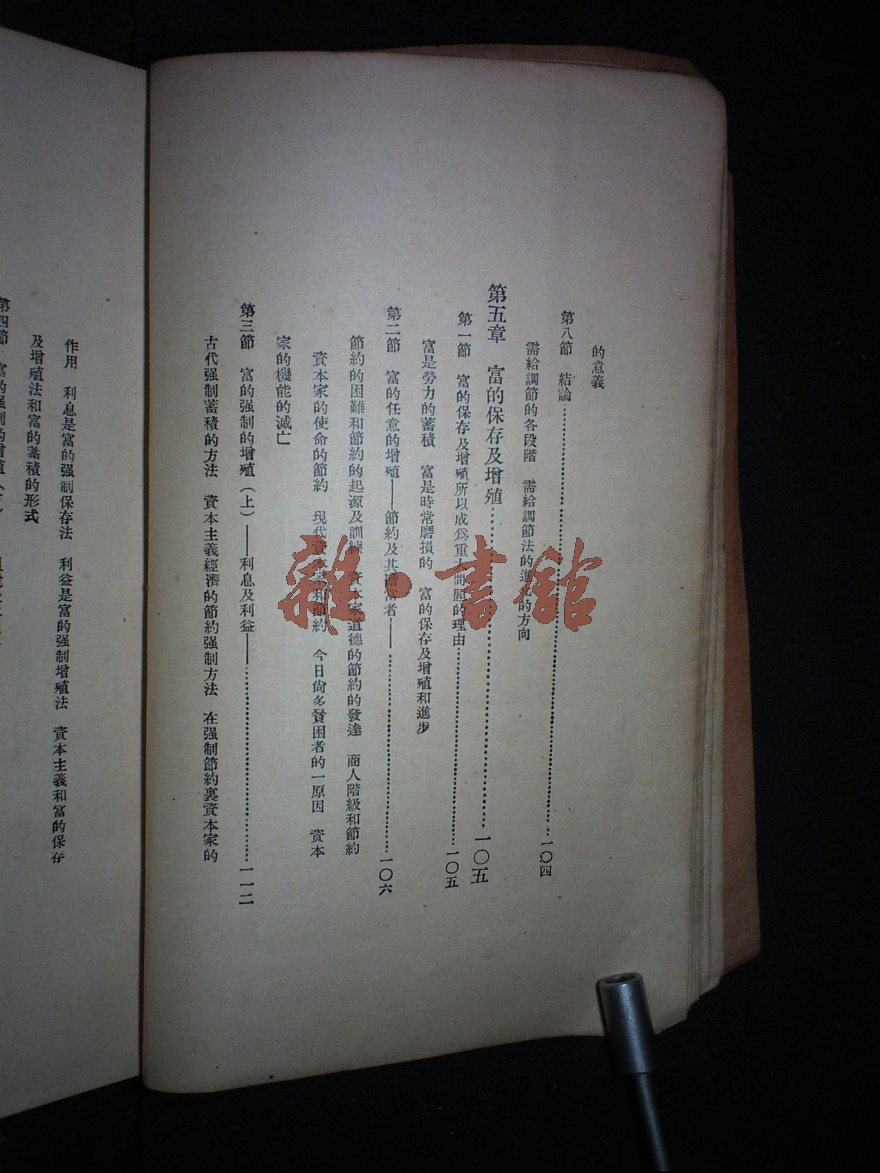 的意義
第八節 結論…………一〇四
需給調節的各段階 需給調節法的進化的方向
第五章 富的保存及增殖…………一〇五
第一節 富的保存及增殖所以成爲重大問題的理由…………一〇五
富是勞力的蓄積 富是時常磨損的 富的保存及增殖和進步
第二節 富的任意的增殖——節約及其擔當者——…………一〇六
節約的困難和節約的起源及訓練 資本家道德的節約的發達 商人階級和節約
資本家的使命的節約 現代資本家和節約 今日尙多貧困者的一原因 資本
家的機能的滅亡
第三節 富的强制的增殖(上)——利息及利益——…………一一二
古代强制蓄積的方法 資本主義經濟的節約强制方法 在强制節約裏資本家的
作用 利息是富的强制保存法 利益是富的强制增殖法 資本主義和富的保存
及增殖法和富的蓄積的形式
第四節 富的强制的增殖(下)
雜·書館